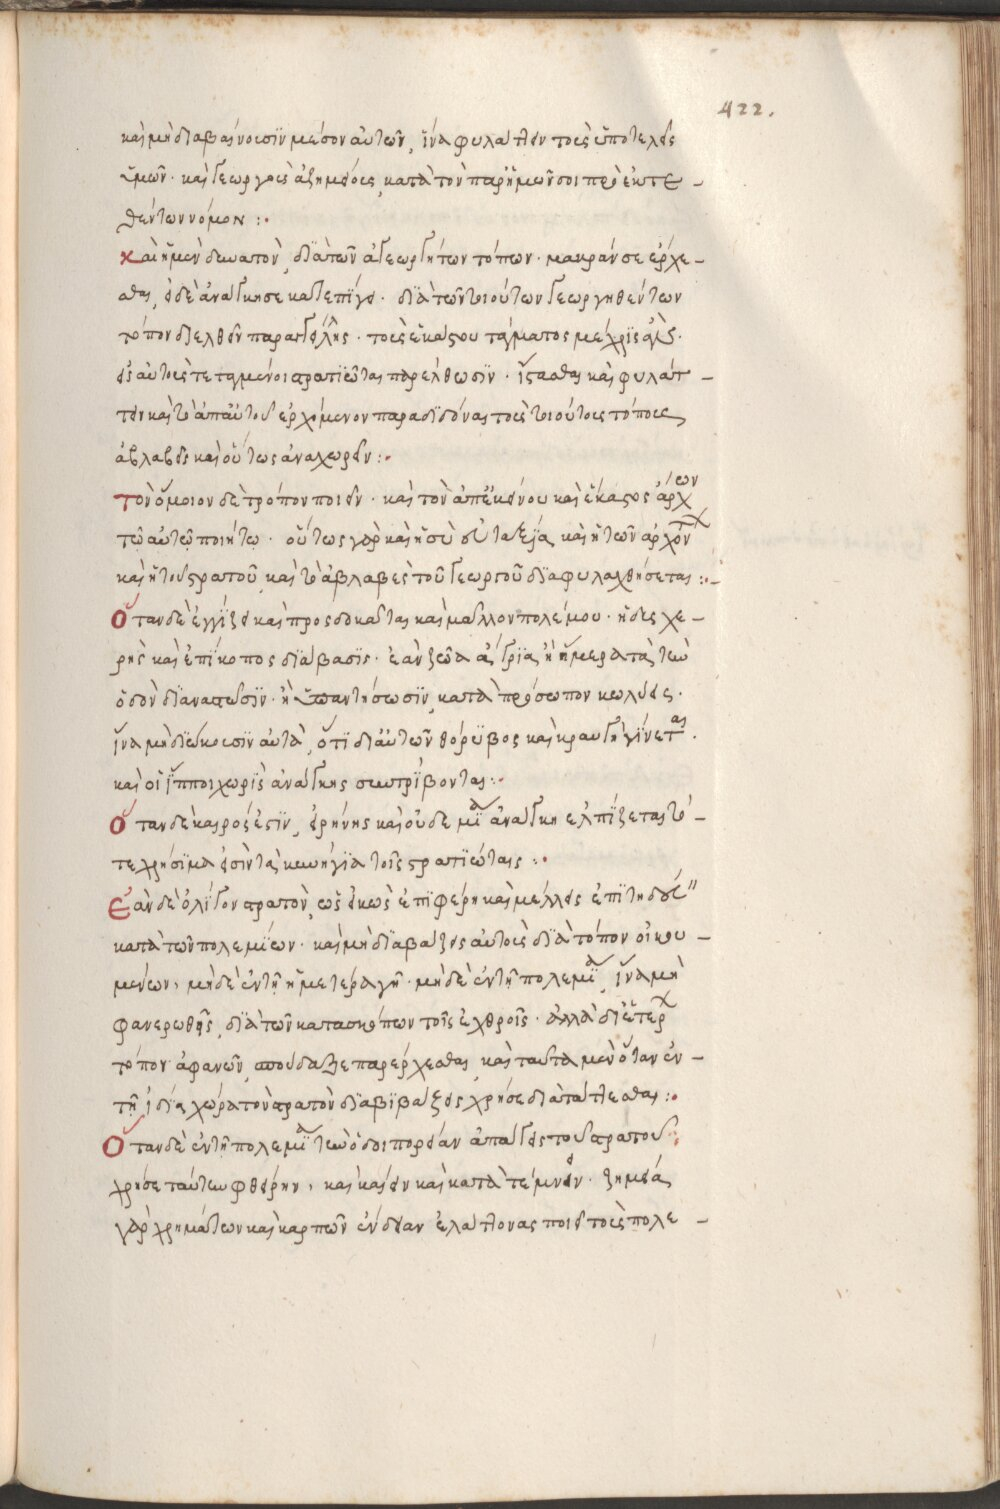 422.
καὶ μὴ διαβαίνουσϊν μέσον αὐτῶν, ἵνα φυλάττειν τοὺς ὑποτελεῖς
ὑμῶν· καὶ γεωργοὺς ἀζημίους, κατὰ τὸν παρ' ἡμῶν σοι προεκτε –
θέντων νόμον :·
καὶ εἰ μὲν δυνατὸν, διὰ τῶν ἀγεωργήτων τόπων· μακράν σε ἔρχε –
σθαι, εἰ δὲ ἀνάγκη σε κατεπίγει· διὰ τῶν τοιούτων γεωργηθέντων
τόπον διελθεῖν παραγγείλῃς· τοὺς ἑκάστου τάγματος μέχρις ἂν
εἰς αὐτοὺς τεταγμένοι στρατιῶται παρέλθωσϊν· ἵστασθαι καὶ φυλάτ –
τειν καὶ τὸ ἀπ' αὐτοῦ ἐρχόμενον παραδϊδόναι τοὺς τοιούτους τόπους
ἀβλαβεῖς καὶ οὕτως ἀναχωρεῖν :·
Τὸν ὅμοιον δὲ τρόπον ποιεῖν· καὶ τὸν ἀπ' ἐκείνου καὶ ἕκαστος ἀρχόντων
τῷ αὐτῷ ποιήτω· οὕτως γὰρ καὶ ἡ σὺ εὐταξία καὶ ἡ τῶν ἀρχόντων
καὶ ἡ τοῦ στρατοῦ καὶ τὸ ἀβλαβὲς τοῦ γεωργοῦ διαφυλαχθήσεται :·–
Ὅταν δὲ ἐγγίζει καὶ προσδοκᾶται καὶ μᾶλλον πολέμου· ἢ δυσχε –
ρὴς καὶ ἐπίκοπος διάβασϊς· ἐὰν ζῶα ἄγρια ἢ ἥμερα τὰ τὴν
ὁδὸν διαναπωσϊν· ἢ ὑπαντήσωσϊν, κατὰ πρόσωπον κωλύεις·
ἵνα μὴ διώκουσϊν αὐτὰ, ὅτϊ δι' αὐτῶν θόρυβος καὶ κραυγὴ γίνεται.
καὶ οἱ ἵπποι χωρὶς ἀνάγκης συντρίβονται :·
Ὅταν δὲ καιρός ἐστϊν, εἰρήνης καὶ οὐδεμία ἀνάγκη ἐλπίζεται τό –
τε χρήσϊμα εἰσὶν τὰ κυνηγία τοῖς στρατϊώταις :·
Ἐὰν δὲ ὀλίγον στρατὸν, ὡς εἰκὼς ἐπιφέρῃ καὶ μέλλεις ἐπιτηδεύειν
κατὰ τῶν πολεμίων· καὶ μὴ διαβάζεις αὐτοὺς διὰ τόπον οἰκου –
μένων, μὴ δὲ ἐν τῇ ἡμετέρα γῇ· μὴ δὲ ἐν τῇ πολεμία, ἵνα μὴ
φανερωθῇς, διὰ τῶν κατασκόπων τοῖς ἐχθροῖς· ἀλλὰ δι' ἑτέρων
τόπον ἀφανῶν, σπούδαζε παρέρχεσθαι, καὶ ταῦτα μὲν ὅταν ἐν –
τῇ ἰδίᾳ χώρα τὸν στρατὸν διαβιβάζεις χρήσε διαπάττεσθαι :·
Ὅταν δὲ ἐν τῇ πολεμία τὴν ὁδοιπορείαν ἀπάγεις τοῦ στρατοῦ·
χρήσε ταύτην φθείρην, καὶ καίειν καὶ κατατέμνειν· ζημεία
γὰρ χρημάτων καὶ καρπῶν ἔνδειαν ἐλάττονας ποιεῖ τοὺς πολε –